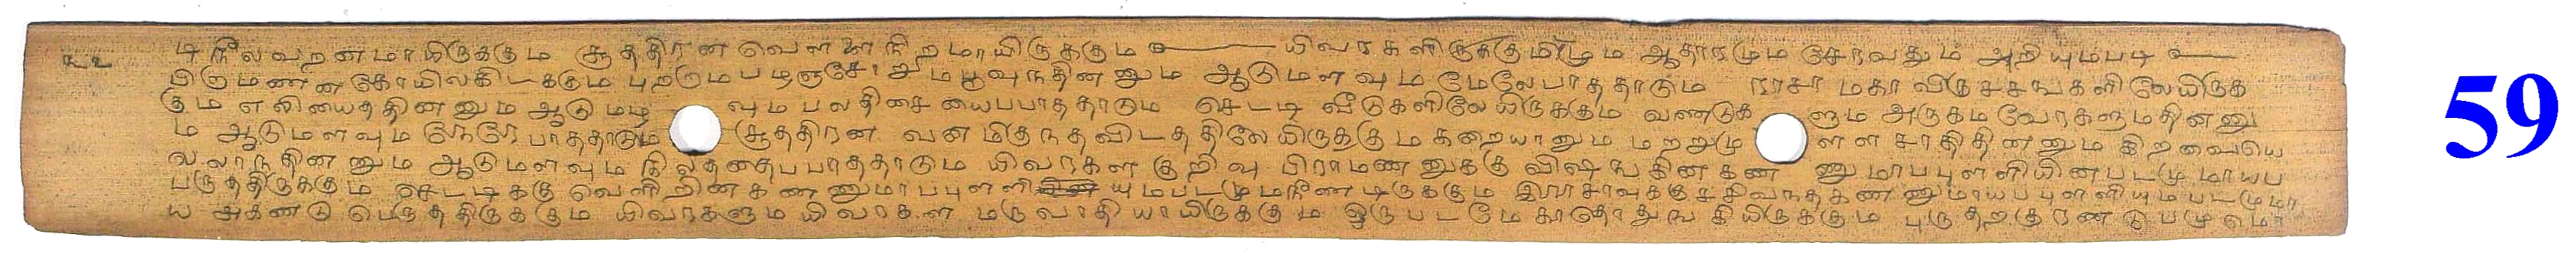 டி நீலவறனமாயிருககும சூததிரன வெளளை நிறமாயிருககும யிவரகளிருககுமிடமும ஆதாரமும சேரவதும அறியும்படி
பிருமணன கோயிலகிடககும புறடும படிஞசோறும பூவுந தினனும ஆடுமளவும மேலேபாததாடும ராசா மகா விருசசஙகளிலேயிருக
கும எலியைததினனும ஆடுமழ வும பலதிசையைபபாததாடும செடடி வீடுகளிலேயிருககும வணடுக ளும அருகம வேரகளுமதினனு
ம ஆடுமளவும நேரே பாததாடும சூததிரன வனமிகுநதவிடததிலேயிருககும கறையானும மறறுமு ளள சாதிதினனும இறவையெ
லலாநதினனும ஆடுமளவும நிலததைபபாததாடும யிவரகள குறிவு பிராமணனுககு விஷஙகினகண ணுமாபபுளளியினபடமுமாயப
பருததிருககும செடடிககு வெளிறினகணணுமாபபுளளி யுமபடமுமநீணடிருககும இராசாவுககுசசிவநதகணணுமாயபபுளளியுமபடமுமா
ய அகணடு பெருததிருககும யிவரகளும யிவரகள மருவாதியாயிருககும ஒருபடமே காதொதுஙகியிருககும புருதறகுரணடுபமுமொ
59